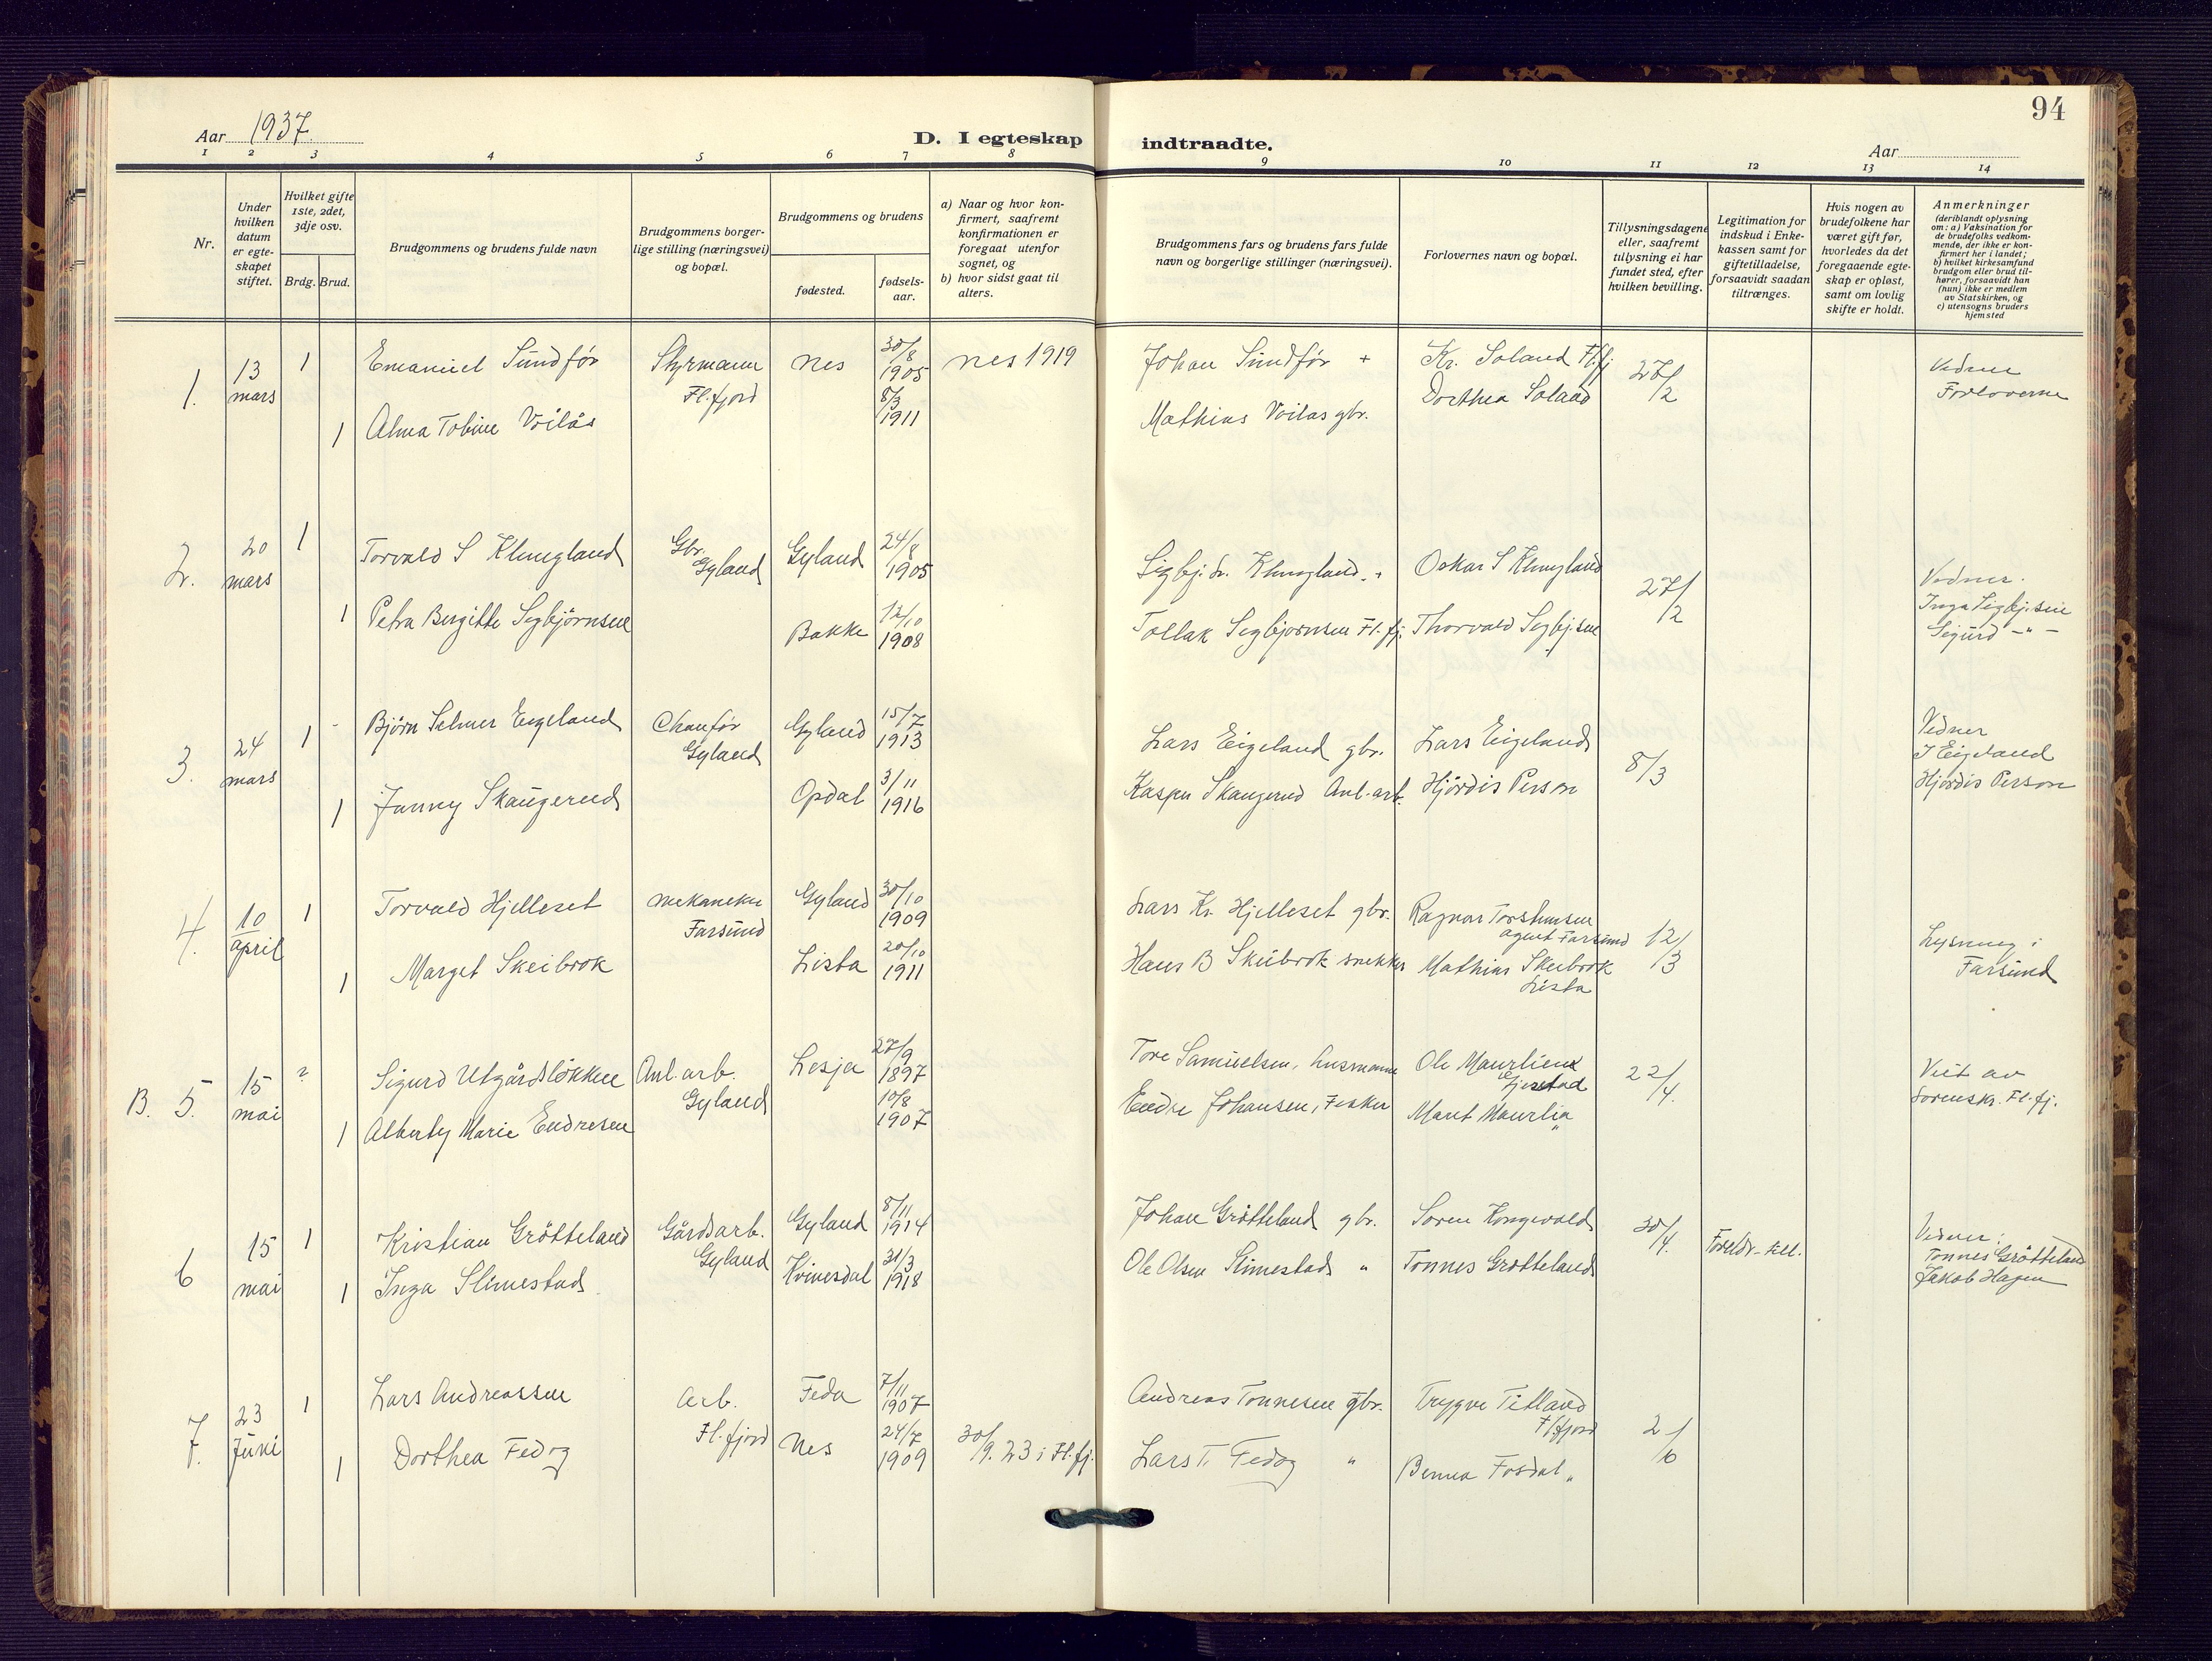 94
Aar 1937.
D. I egteskap indtraadte.
Aar
1 2 3 4 5 6 7 8 9 10 11 12 13 14
Nr.
Under hvilken datum er egte-skapet stiftet.
Hvilket gifte 1ste, 2det, 3dje osv.
Brdg. Brud.
Brudgommens og brudens fulde navn
Brudgommens borger-lige stilling (næringsvei) og bopæl.
Brudgommens og brudens
fødested.
fødsels-aar.
a) Naar og hvor kon-firmert, saafremt konfirmationen er foregaat utenfor sognet, og
b) hvor sidst gaat til alters.
Brudgommens fars og brudens fars fulde navn og borgerlige stillinger (næringsvei).
Forlovernes navn og bopæl.
Tillysningsdagene eller, saafremt tillysning ei har fundet sted, efter hvilken bevilling.
Legitimation for indskud i Enke-kassen samt for giftetilladelse, forsaavidt saadan tiltrænges.
Hvis nogen av brudefolkene har været gift før, hvorledes da det foregaaende egte-skap er opløst, samt om lovlig skifte er holdt.
Anmerkninger
(deriblandt oplysning om: a) Vaksination for de brudefolks vedkom-mende, der ikke er kon-firmert her i landet;
b) hvilket kirkesamfund brudgom eller brud til-hører, forsaavidt han (hun) ikke er medlem av Statskirken, og
c) utensogns bruders hjemsted
1. 13 mars 1 Emanuel Sundfør Styrmann Fl.fjord Nes 30/8 1905 Nes 1919 Johan Sundfør + Kr. Soland Fl.fj 27/2 Vedner Forloverne
1 Alma Tobine Voilås 8/3 1911 Mathias Voilas gbr. Dorthea Soland
2. 20 mars 1 Torvald S Klungland Gbr. Gyland Gyland 24/8 1905 Sigbj. Klungland. + Oskar S Klungland 27/2 Vedner. Inga Sigbj.sen Sigurd -"-
1 Petra Birgitte Sigbjørnsen Bakke 12/10 1908 Tollak Sigbjørnsen Fl.fj. Thorvald Sigbj.sen
3. 24 mars 1 Bjørn Selmer Eigeland Chauffør Gyland Gyland 15/7 1913 Lars Eigeland gbr. Lars Eigeland 8/3 Vedner J Eigeland Hjørdis Person
1 Jenny Skaugerud Opdal 3/11 1916 Kasper Skaugerud Anl.arb. Hjørdis Person
4. 10 april 1 Torvald Hjelleset mekaneker Farsund Gyland 30/10 1909 Lars Kr. Hjelleset gbr. Ragnar Torstensen agent Farsund 12/3 Lysning i Farsund
1 Marget Skeibrok Lista 20/10 1911 Hans B Skeibrok snekker Mathias Skeibrok Lista
B. 5. 15 mai 2 Sigurd Utgårdsløkken Anl.arb. Gyland Lesja 27/9 1897 Tore Samuelsen, husmann Ole Maurlien Gjerstad 22/4. Viet av Sorenskr. Fl.fj.
1 Alberty Marie Endresen 10/8 1907 Endre Johansen, Fisker Marit Maurlia "
6 15 mai 1 Kristian Grøtteland Gårdsarb. Gyland Gyland 8/11 1914 Johan Grøtteland gbr. Søren Kongevold 30/4. Foreldr.till. Vedner: Tønnes Grøtteland Jakob Hagen
1 Inga Slimestad Kvinesdal 31/3 1918 Ole Olsen Slimestad " Tønnes Grøtteland
7. 23 juni 1 Lars Andreassen Arb. Fl.fjord Feda 7/11 1907 Andreas Tønnesen gbr. Trygve Titland Fl.fjord 2/6
1 Dorthea Fedog Nes 24/7 1909 30/9. 23 i Fl.fj. Lars T. Fedog " Benna Fosdal "